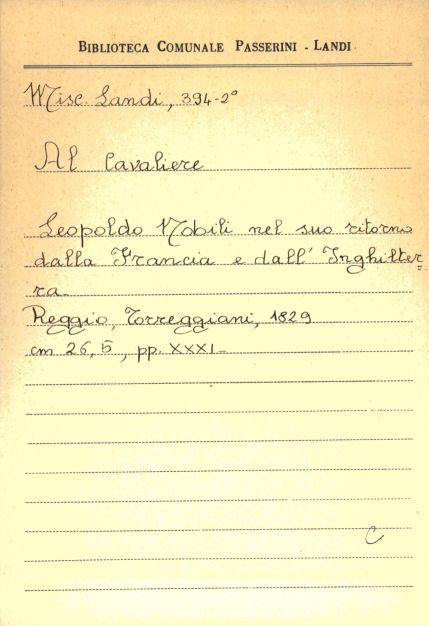 BIBLIOTECA COMUNALE PASSERINI - LANDI
Misc. Landi, 394-2°
Al Cavaliere
Leopoldo Nobili nel suo ritorno
dalla Francia e dall' Inghilter=
ra.
Reggio, Torreggiani, 1829
cm 26,5, pp. XXXI-
C